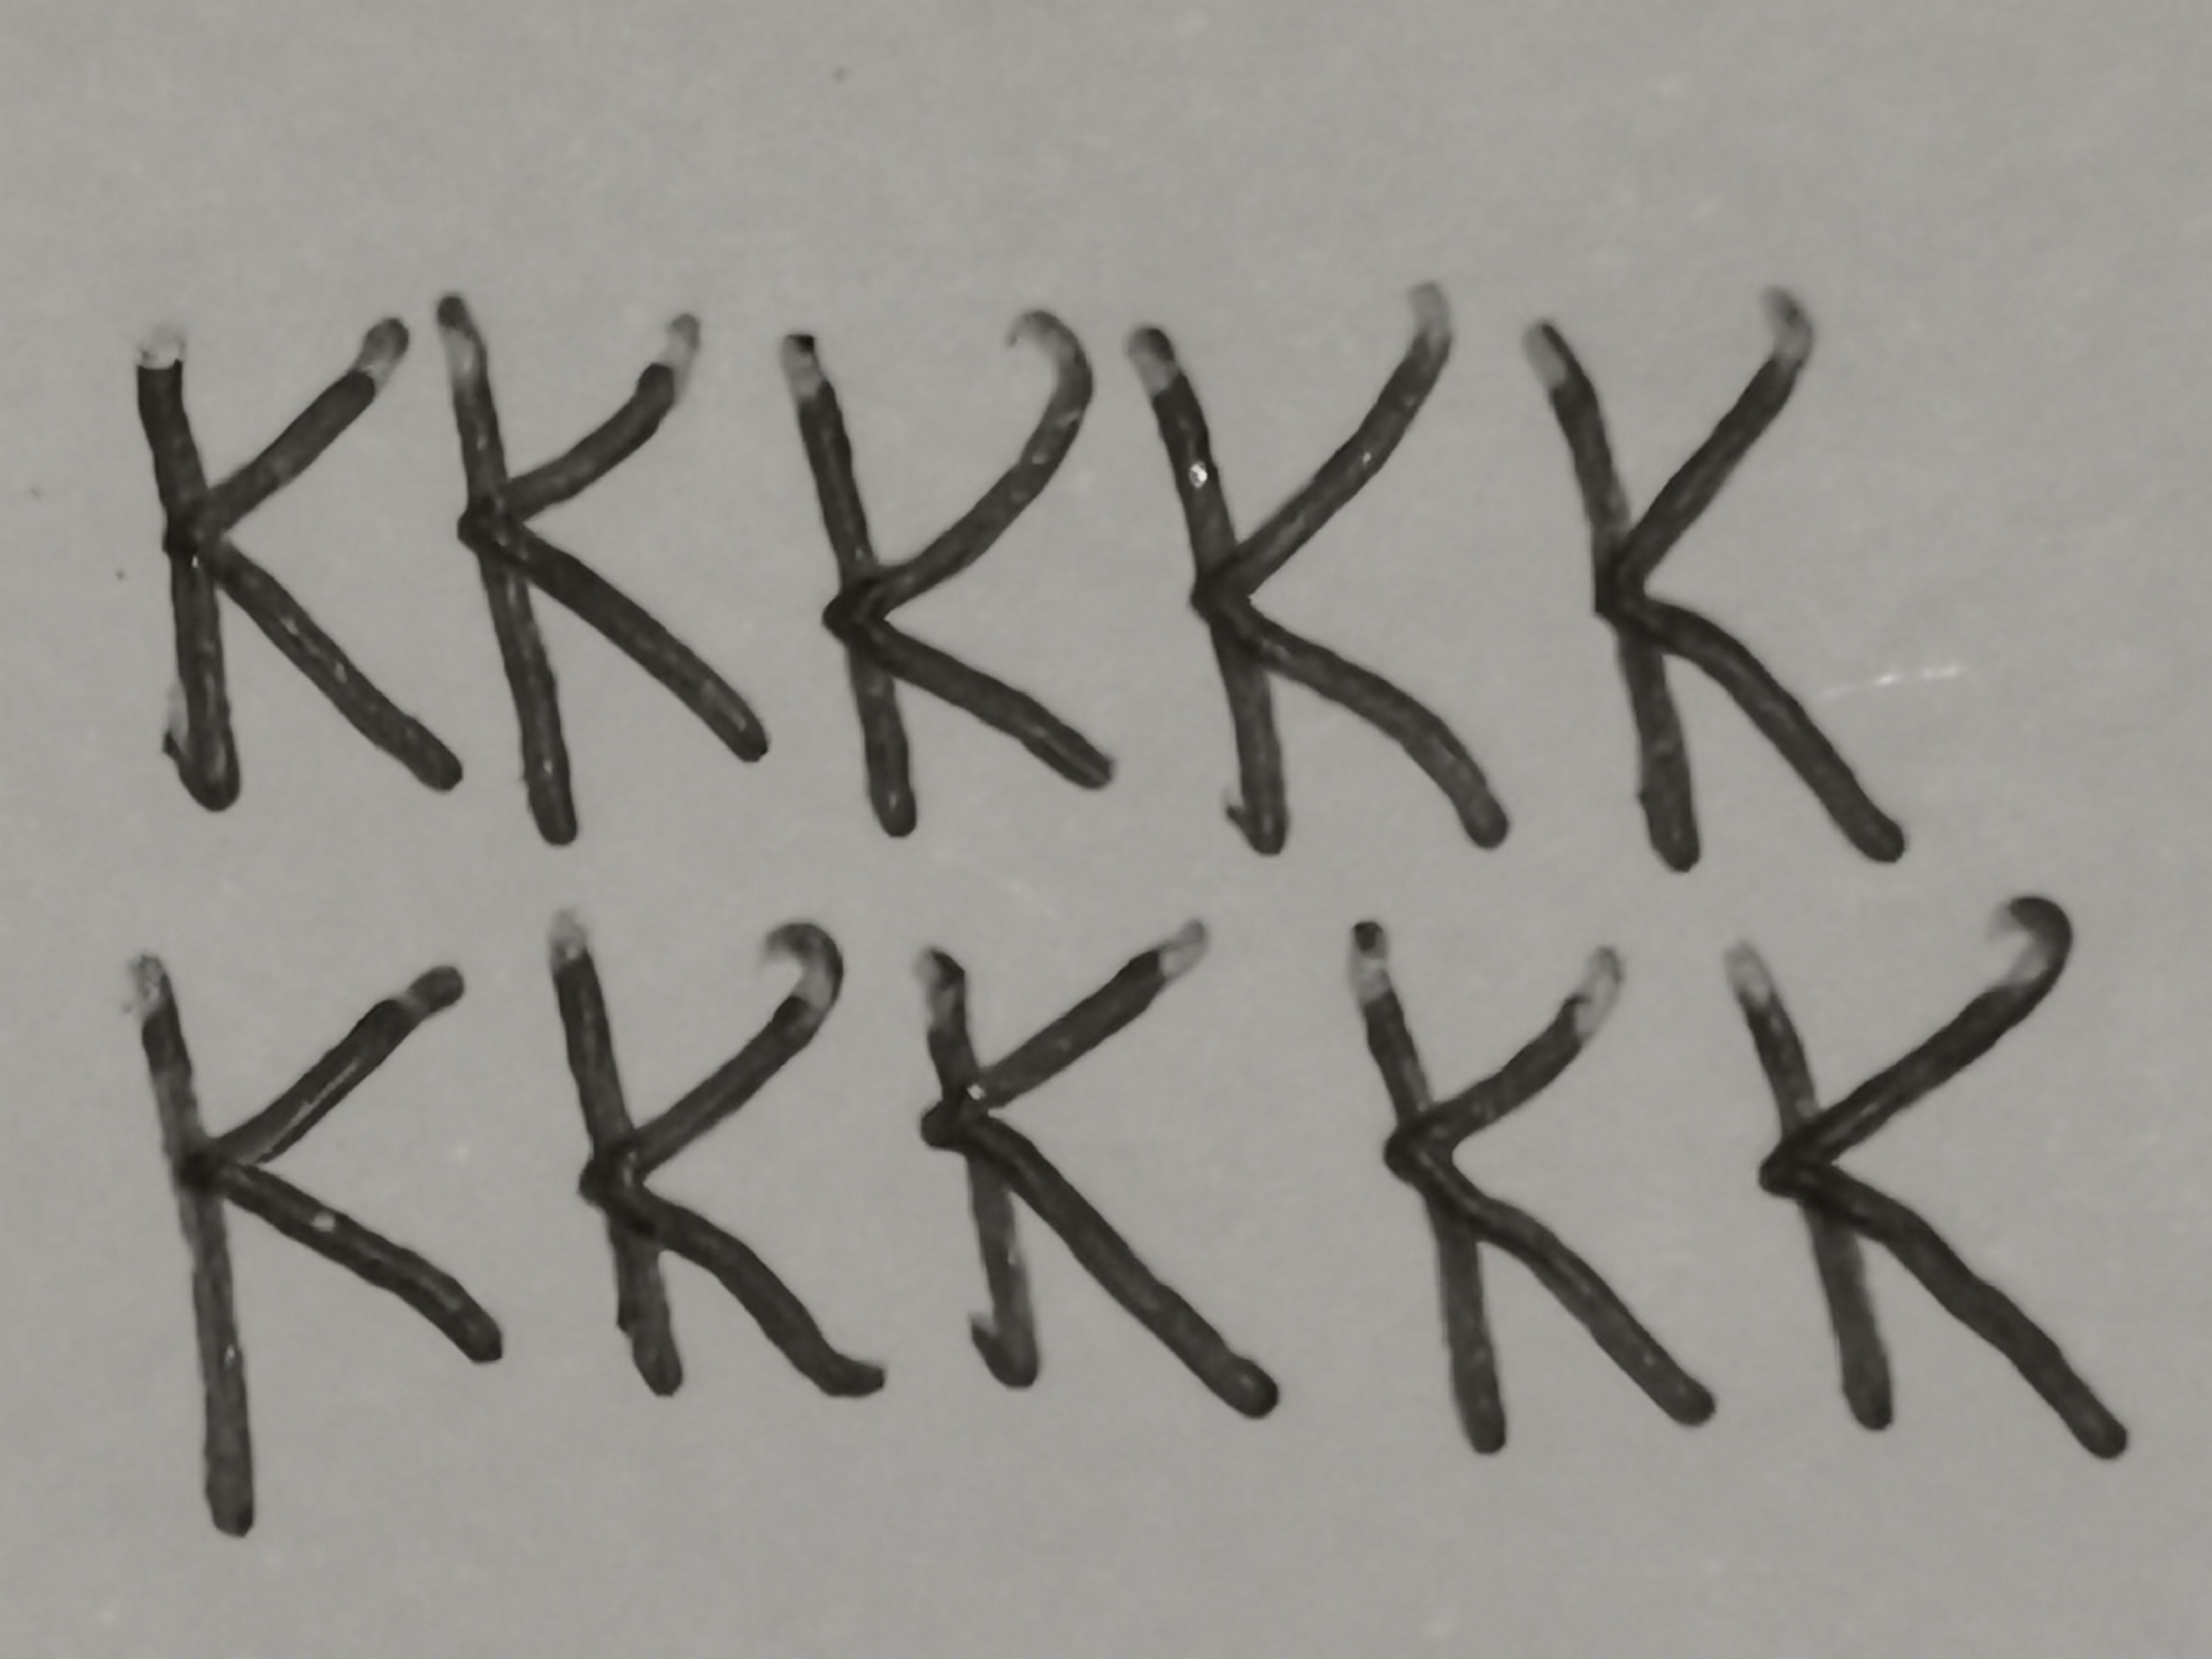 K K K K K
K K K K K